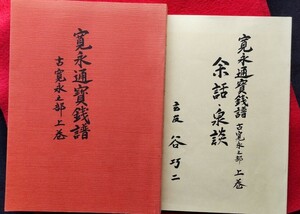 寛永通寳銭譜
古寛永之部 上巻
寛永通寳銭譜 古寛永之部 上巻
余話・泉談
谷巧二